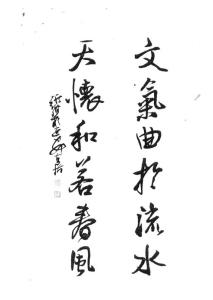 文氣曲於流水
天懷和若春風